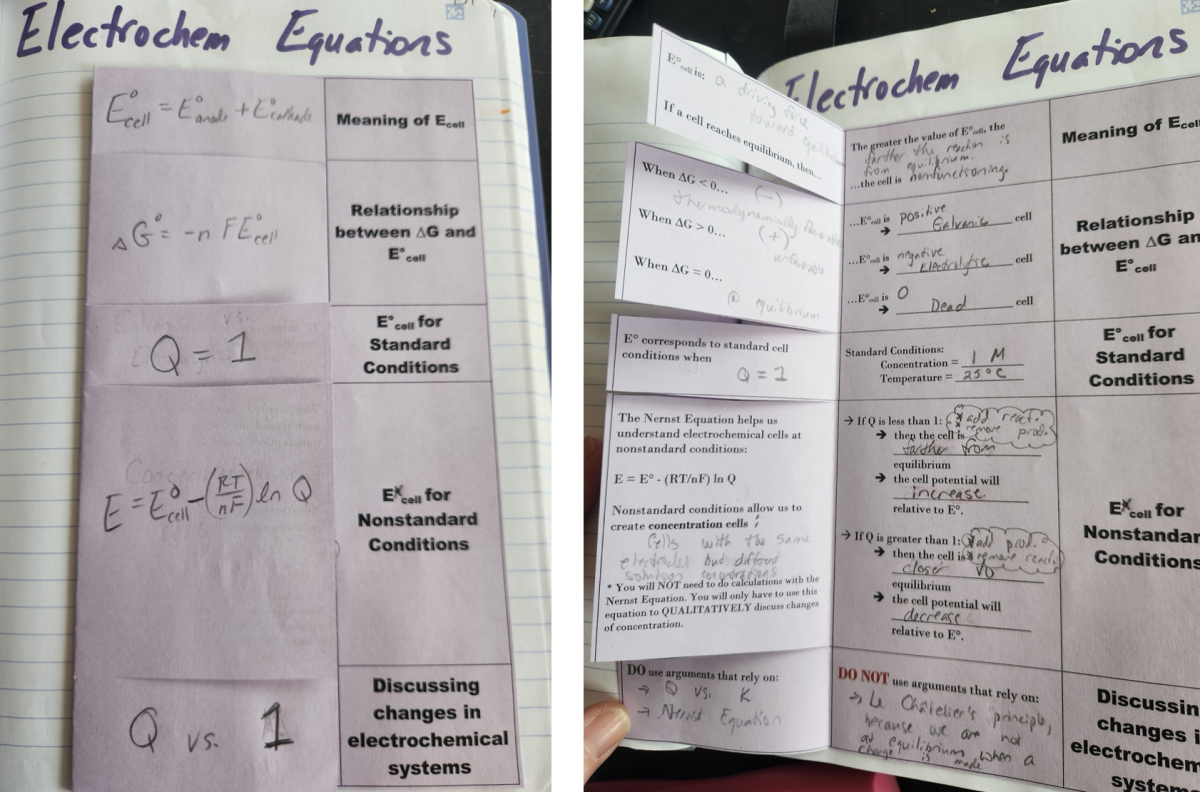 Electrochem Equations
E°cell = E°anode + E°cathode
Meaning of Ecell
ΔG° = -n FE°cell
Relationship
between ΔG and
E°cell
vs.
Q = 1
E°cell for
Standard
Conditions
E = E°cell - (RT/nF) ln Q
Ecell for
Nonstandard
Conditions
Q vs. 1
Discussing
changes in
electrochemical
systems
Electrochem Equations
E°cell is: a driving force
toward equilibrium
If a cell reaches equilibrium, then...
The greater the value of E°cell, the
farther the reaction is
from equilibrium.
...the cell is nonfunctioning.
Meaning of Ecell
When ΔG < 0... (-)
thermodynamically favorable
When ΔG > 0... (+)
unfavorable
When ΔG = 0...
@ equilibrium
...E°cell is positive
→ Galvanic cell
...E°cell is negative
→ Electrolytic cell
...E°cell is 0
→ Dead cell
Relationship
between ΔG and
E°cell
E° corresponds to standard cell
conditions when
Q = 1
Standard Conditions:
Concentration = 1 M
Temperature = 25°C
E°cell for
Standard
Conditions
The Nernst Equation helps us
understand electrochemical cells at
nonstandard conditions:
E = E° - (RT/nF) ln Q
Nonstandard conditions allow us to
create concentration cells:
Cells with the same
electrodes but different
solution concentrations
* You will NOT need to do calculations with the
Nernst Equation. You will only have to use this
equation to QUALITATIVELY discuss changes
of concentration.
→ If Q is less than 1: * add react.
* remove prod.
→ then the cell is
farther from
equilibrium
→ the cell potential will
increase
relative to E°.
→ If Q is greater than 1: * add prod.
* remove react.
→ then the cell is
closer to
equilibrium
→ the cell potential will
decrease
relative to E°.
Ecell for
Nonstandar
Conditions
DO use arguments that rely on:
→ Q vs. K
→ Nernst Equation
DO NOT use arguments that rely on:
→ Le Chatelier's principle,
because we are not
at equilibrium when a
change is made
Discussin
changes i
electrochem
system